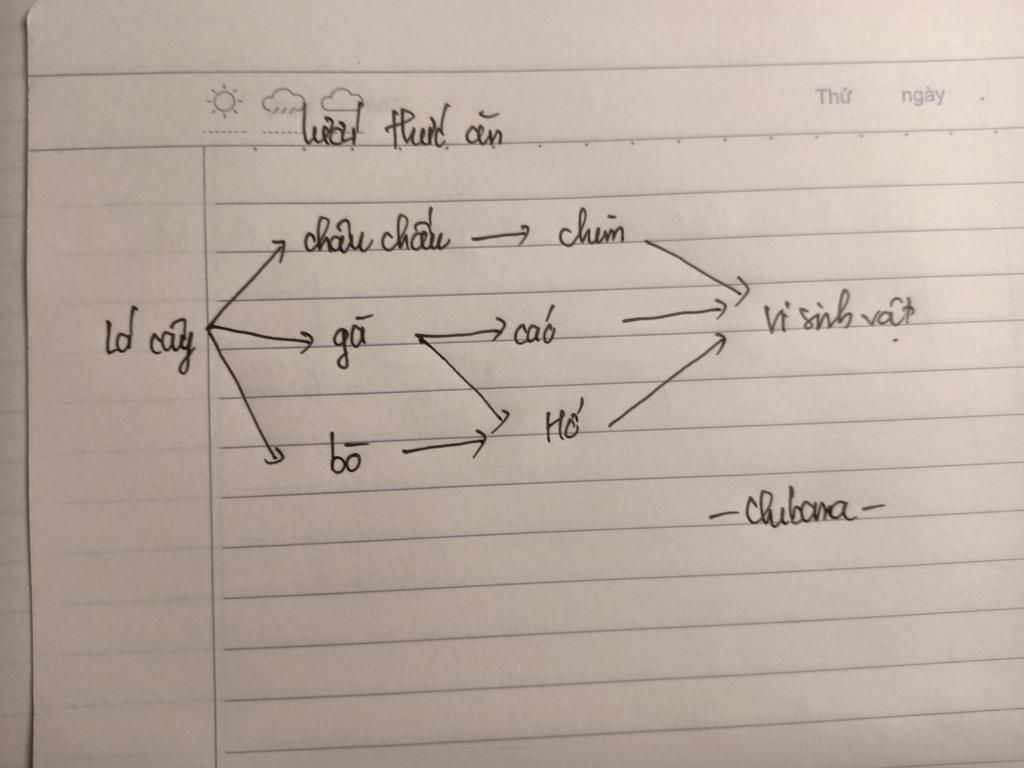 Thứ ngày
lưới thức ăn
châu chấu → chim
lá cây gà → cáo vi sinh vật
bò → Hổ
- Chibana -